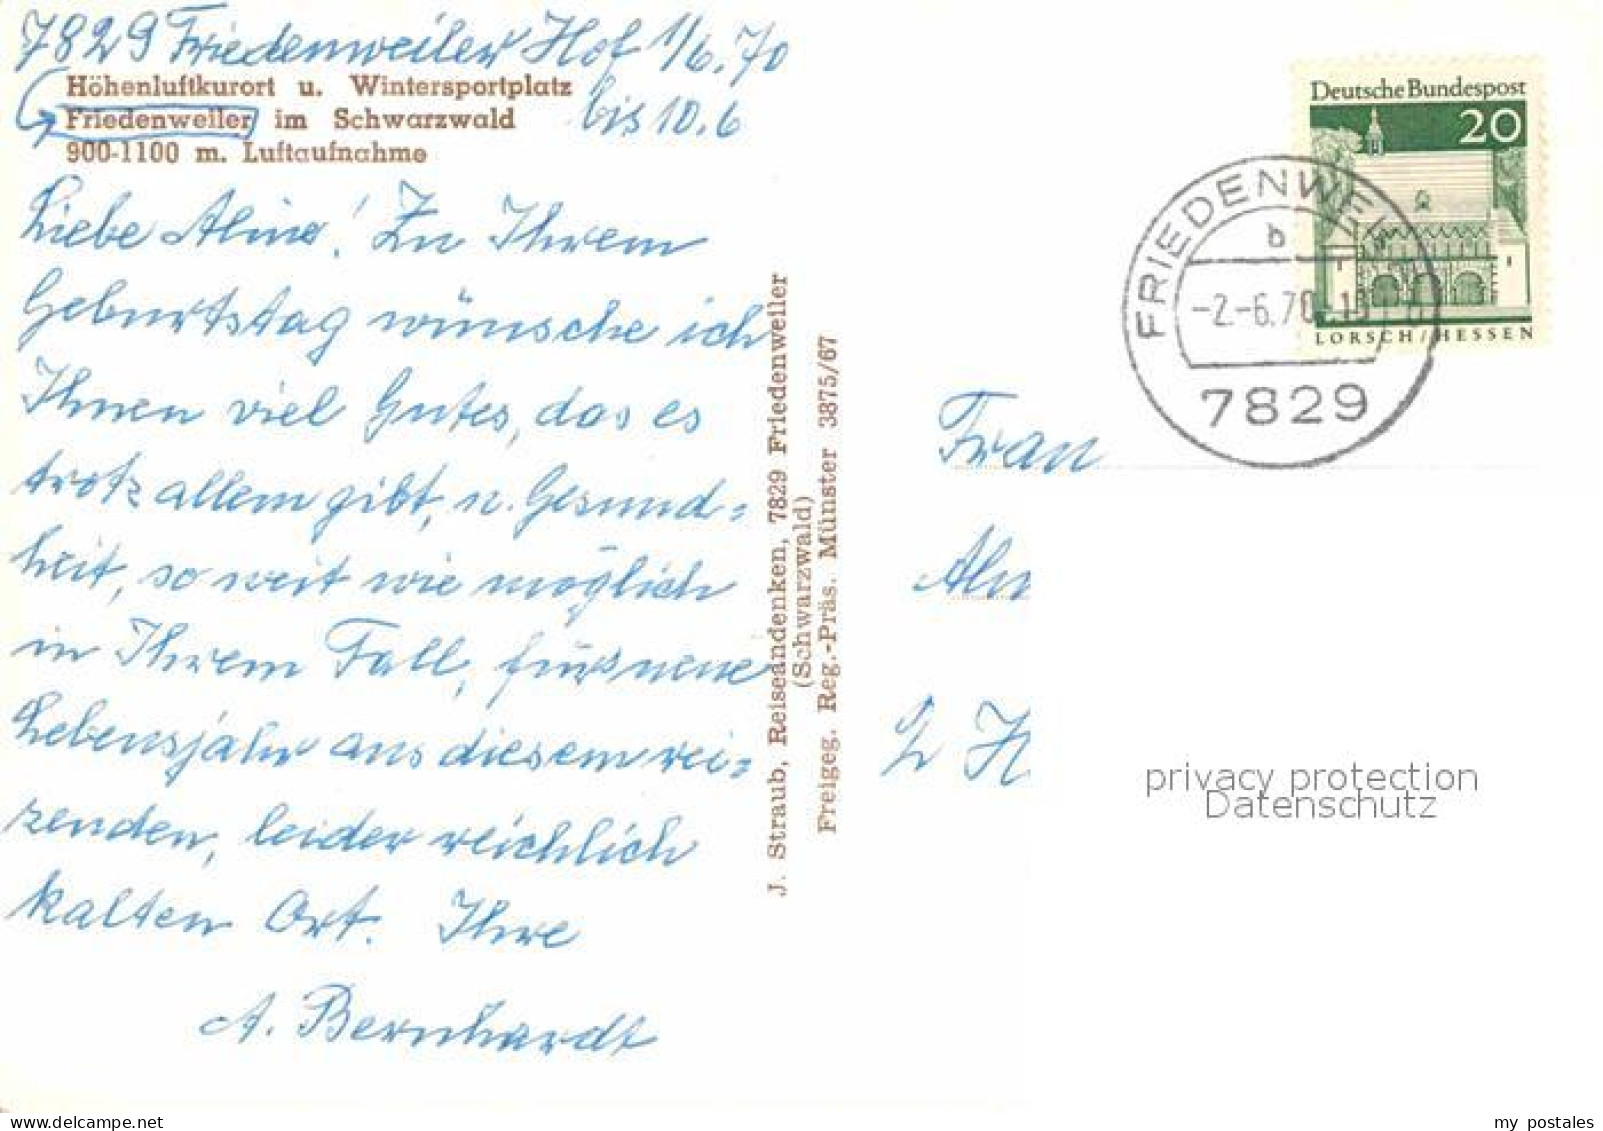 7829 Friedenweiler Hof 1/6.70
Höhenluftkurort u. Wintersportplatz
Friedenweiler im Schwarzwald
bis 10.6
900-1100 m. Luftaufnahme
Liebe Alma! Zu Ihrem
Geburtstag wünsche ich
Ihnen viel Gutes, das es
trotz allem gibt, u. Gesund=
heit, so weit wie möglich
in Ihrem Fall, fürs neue
Lebensjahr aus diesem rei=
zenden, leider reichlich
kalten Ort. Ihre
A. Bernhardt
J. Straub, Reiseandenken, 7829 Friedenweiler
(Schwarzwald)
Freigeg. Reg.-Präs. Münster 3875/67
Deutsche Bundespost
20
LORSCH/HESSEN
FRIEDENWEIL
b
-2.-6.70
7829
Frau
Alm
2 H
privacy protection
Datenschutz
delcampe.net
my postales